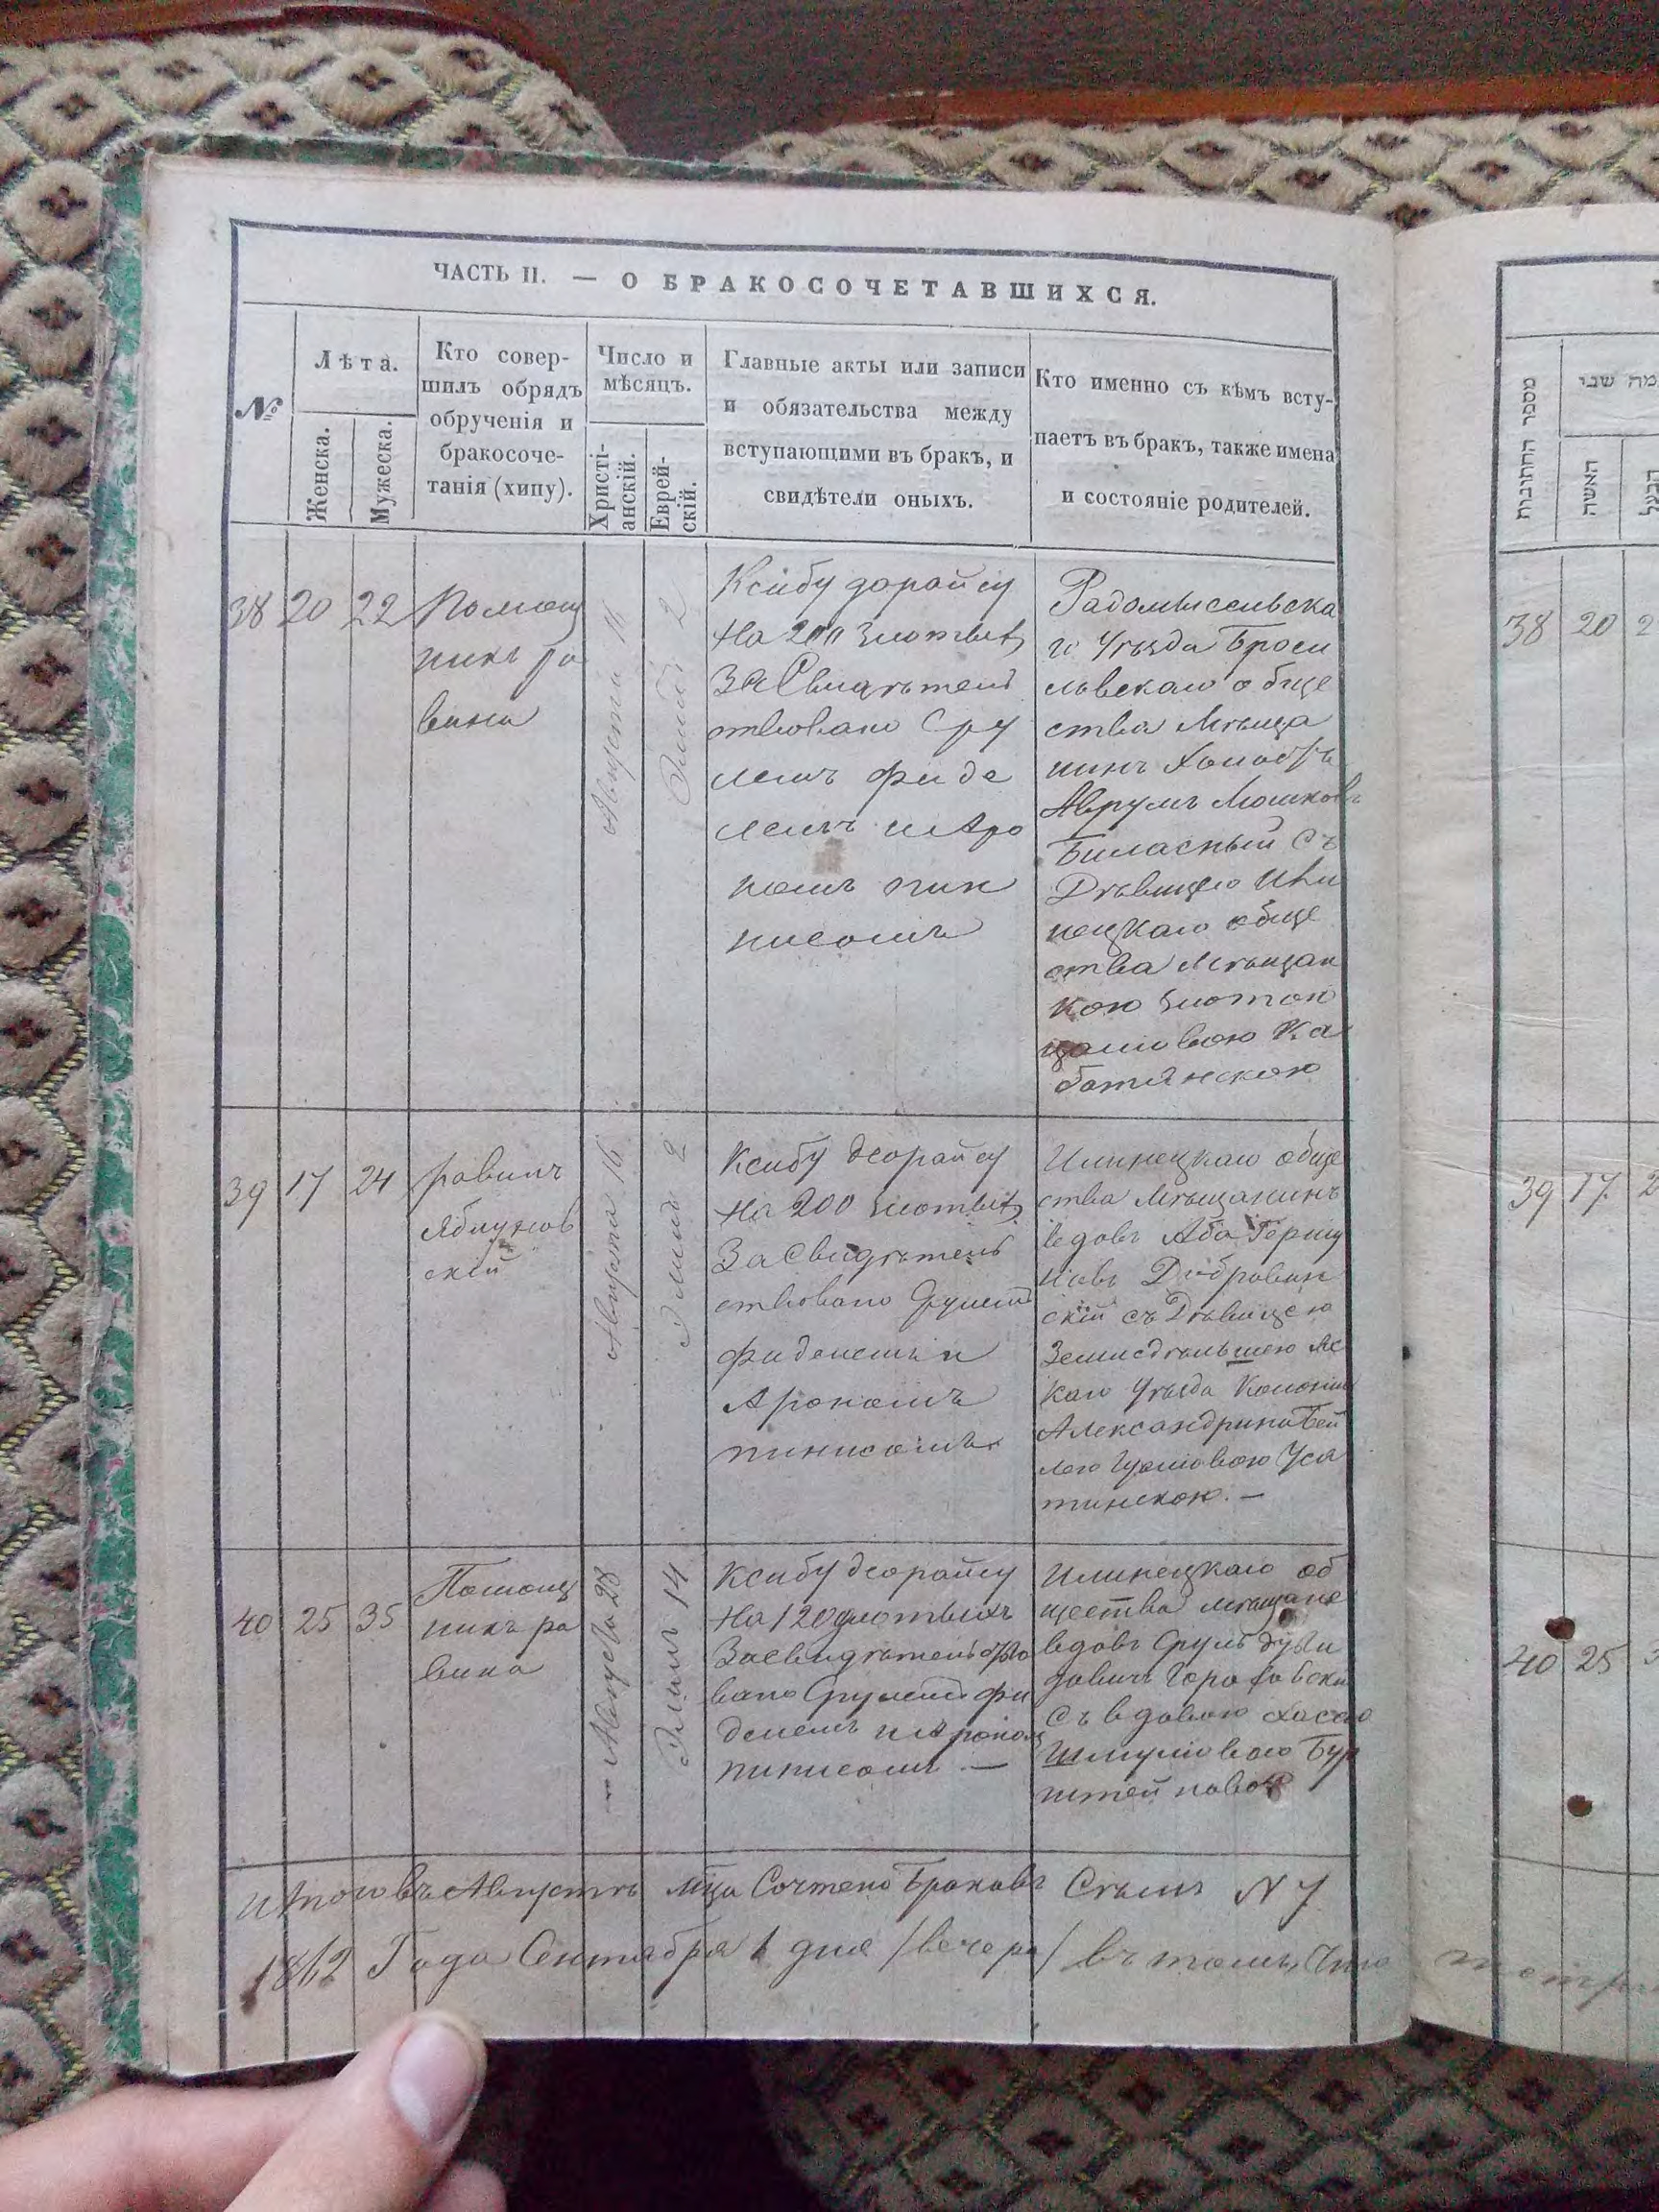 ЧАСТЬ II. — О БРАКОСОЧЕТАВШИХСЯ.
№
Лѣта.
Женска.
Мужеска.
Кто совер-
шилъ обрядъ
обрученія и
бракосоче-
танія (хипу).
Число и
мѣсяцъ.
Христі-
анскій.
Еврей-
скій.
Главные акты или записи
и обязательства между
вступающими въ бракъ, и
свидѣтели оныхъ.
Кто именно съ кѣмъ всту-
паетъ въ бракъ, также имена
и состояніе родителей.
38
20
22
Помощ
никъ ра
вина
Августа 16
Элюль 2
Ксибу дорайсу
На 200 злотыхъ
Засвидѣтель
ствовано Сру
лемъ Фиде
лемъ и Аро
номъ пин
нисомъ
Радомысельска
го Уѣзда Броси
ловскаго обще
ства Мѣща
нинъ Холостъ
Аврумъ Мошковъ
Биласный Съ
Дѣвицею Или
нецкаго обще
ства Мѣщан
кою Злотою
Каботянскою
39
17
24
равинъ
Яблунов
скій
Августа 16
Элюль 2
Ксибу деорайсу
На 200 злотыхъ
Засвидѣтель
ствовано Срулемъ
Фиделемъ и
Арономъ
пинисомъ
Илинецкаго обще
ства Мѣщанинъ
вдовъ Аба Гершу
новъ Добровин
скій съ Дѣвицею
Каго уѣзда Колоніи
Александрина Бей
лею Усятинскою. —
40
25
35
Помощ
никъ ра
вина
— Августа 28
Элюль 14
Ксибу деорайсу
На 120 злотыхъ
Засвидѣтельство
вано Срулемъ Фи
делемъ и Арономъ
пинисомъ —
Илинецкаго об
щества мѣщане
вдовъ Сруль
довичъ
Съ вдовою Хасею
Шмулiовою Бур
штейновой
Итого въ Августѣ мца Сочтено Браковъ Семь N 7
1862 Года Сентября 1 дня /вечера/ въ томъ, Что
מספר החתונות
האשה
הבעל
38
20
39
17
40
25